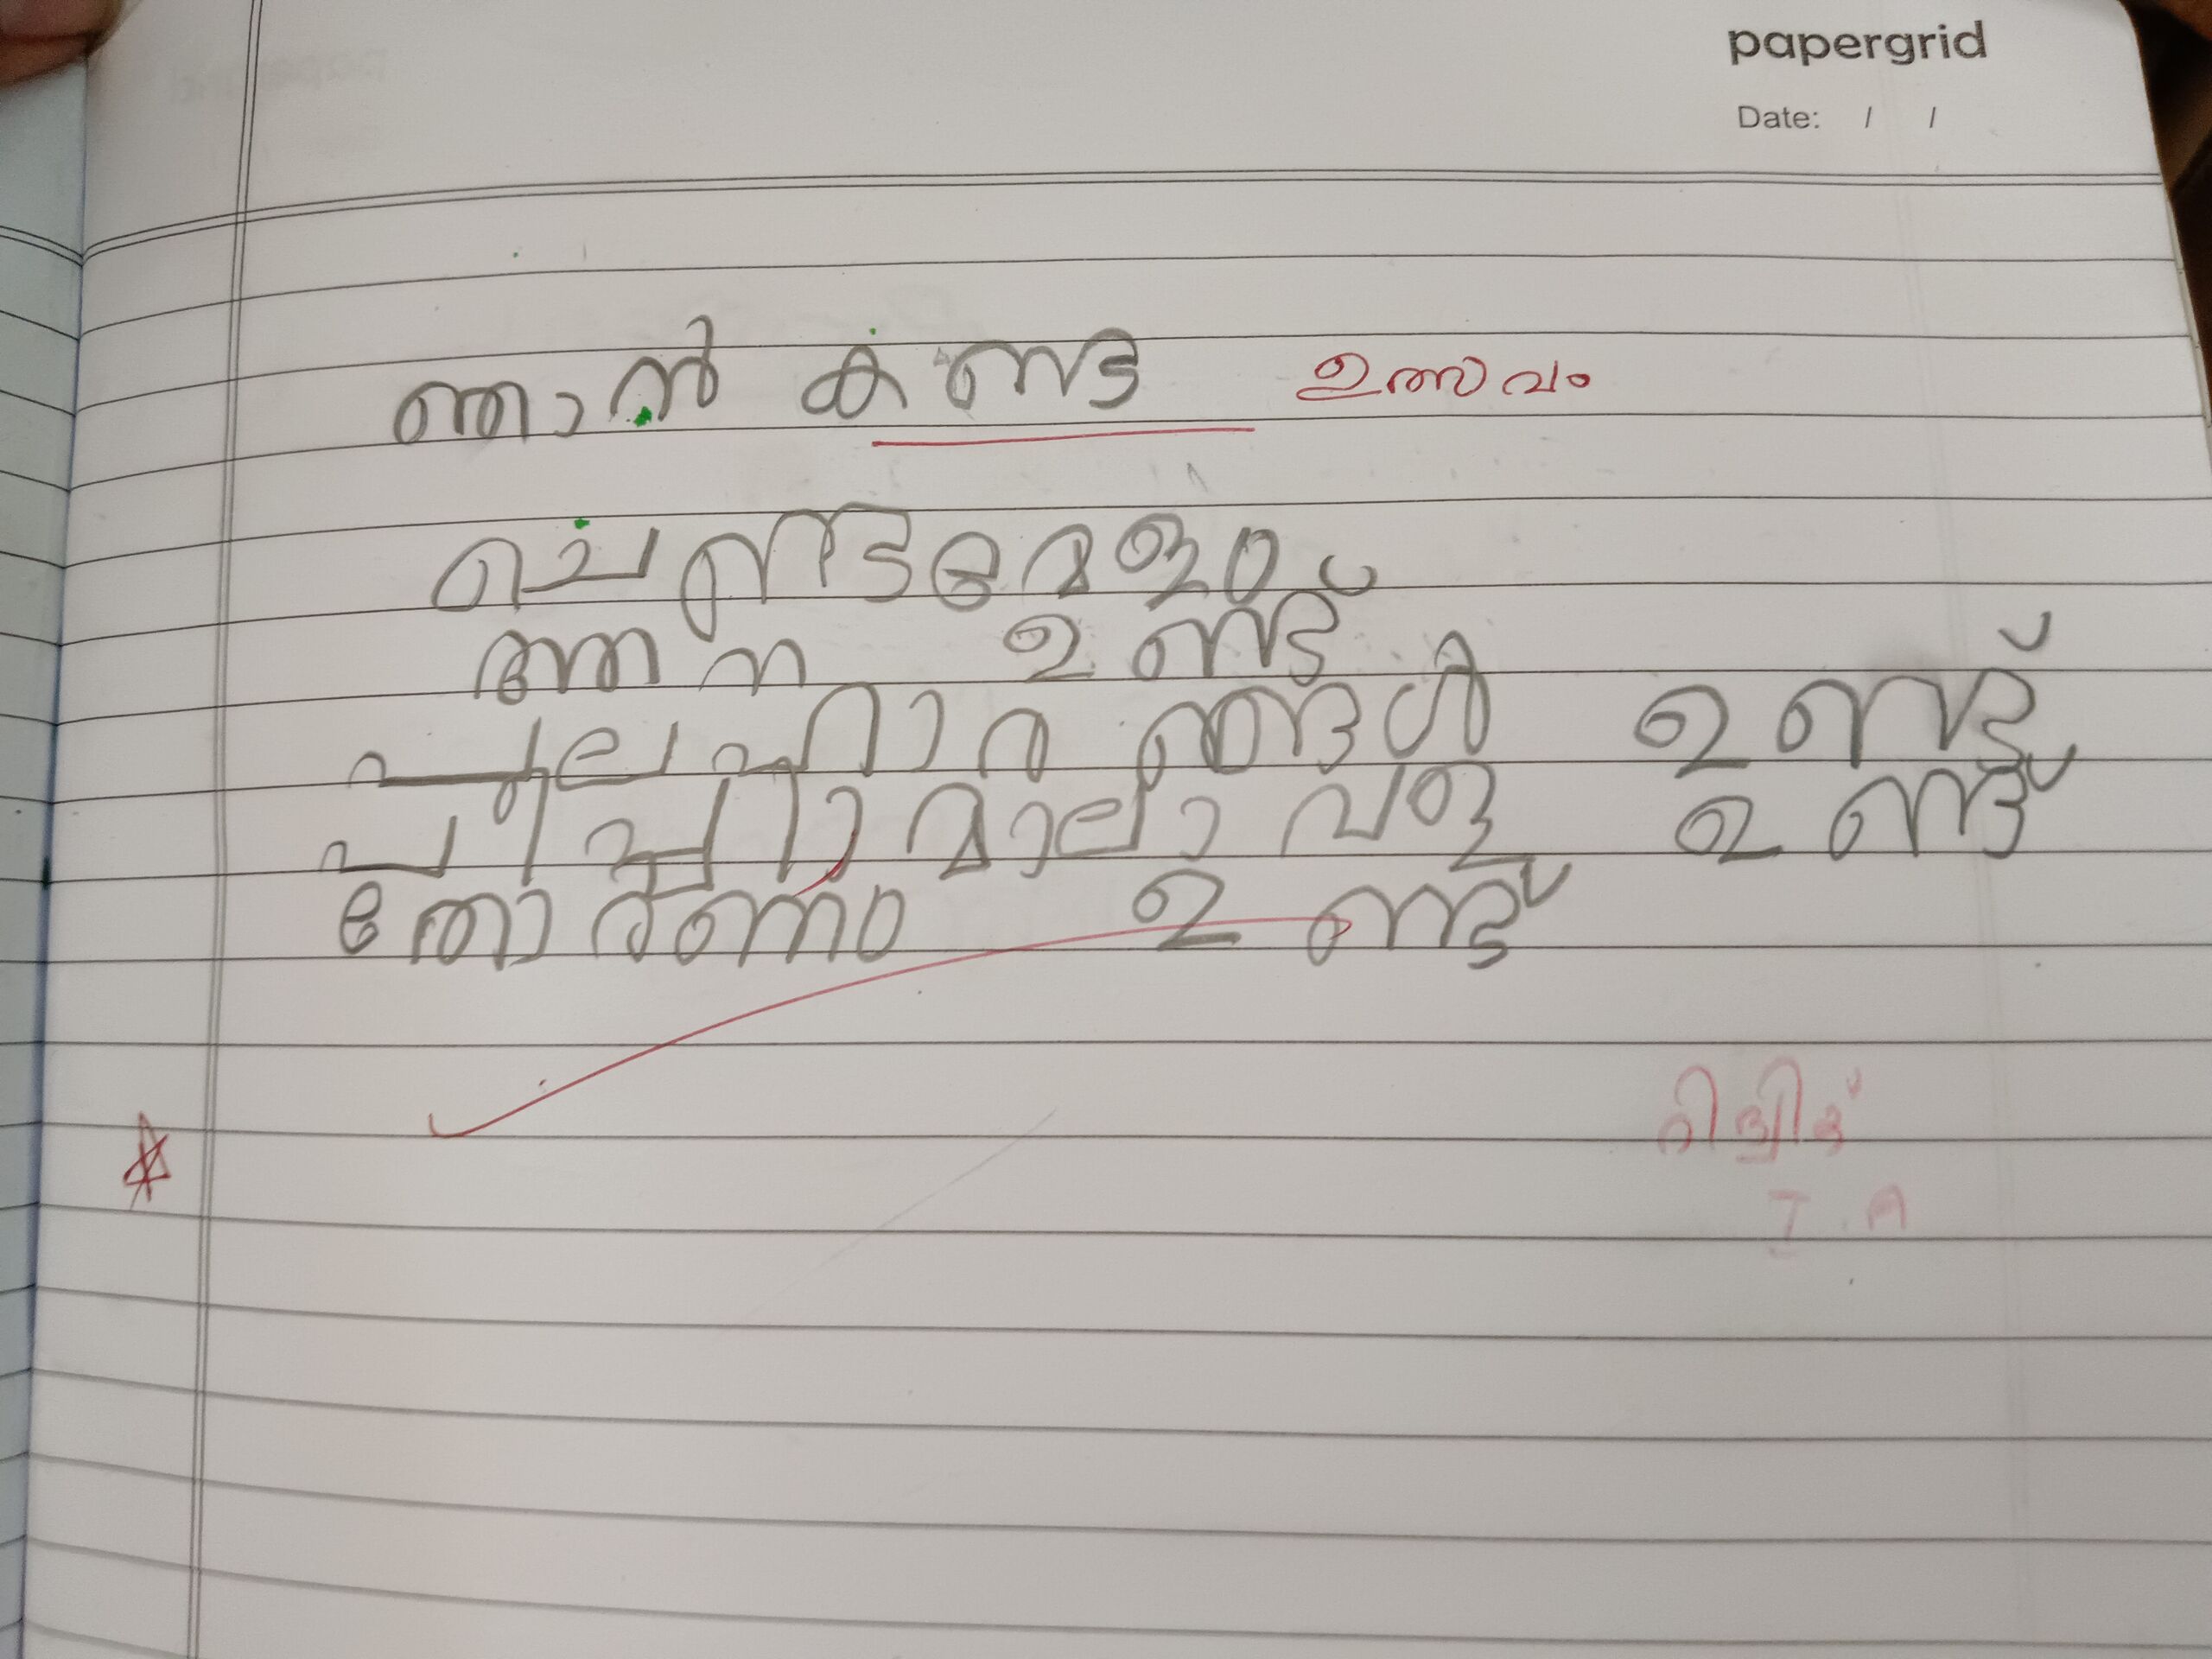 papergrid
Date: / /
ഞാൻ കണ്ട ഉത്സവം
ചെണ്ടമേളം
ആന ഉണ്ട്
പലഹാരങ്ങൾ ഉണ്ട്
പീപ്പീ മാല വള ഉണ്ട്
തോരണം ഉണ്ട്
I. A